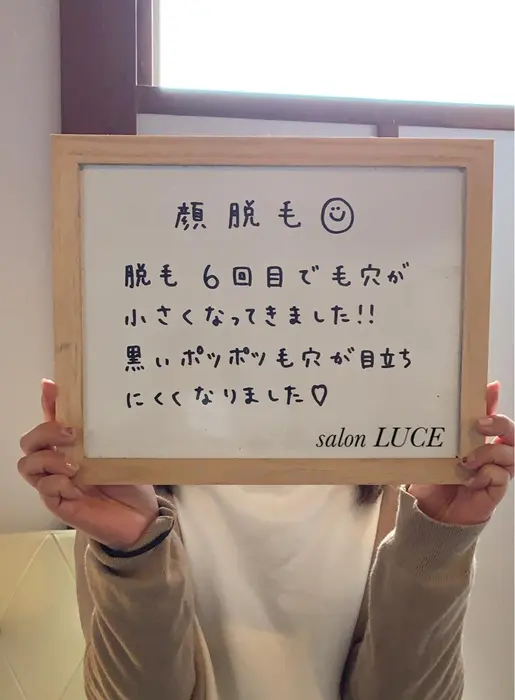 顔脱毛
脱毛6回目で毛穴が
小さくなってきました!!
黒いポツポツ毛穴が目立ち
にくくなりました♡
salon LUCE